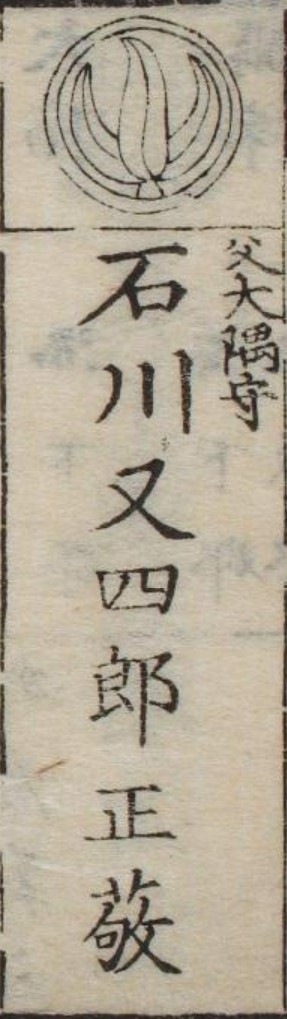 父大隅守
石川又四郎正敬